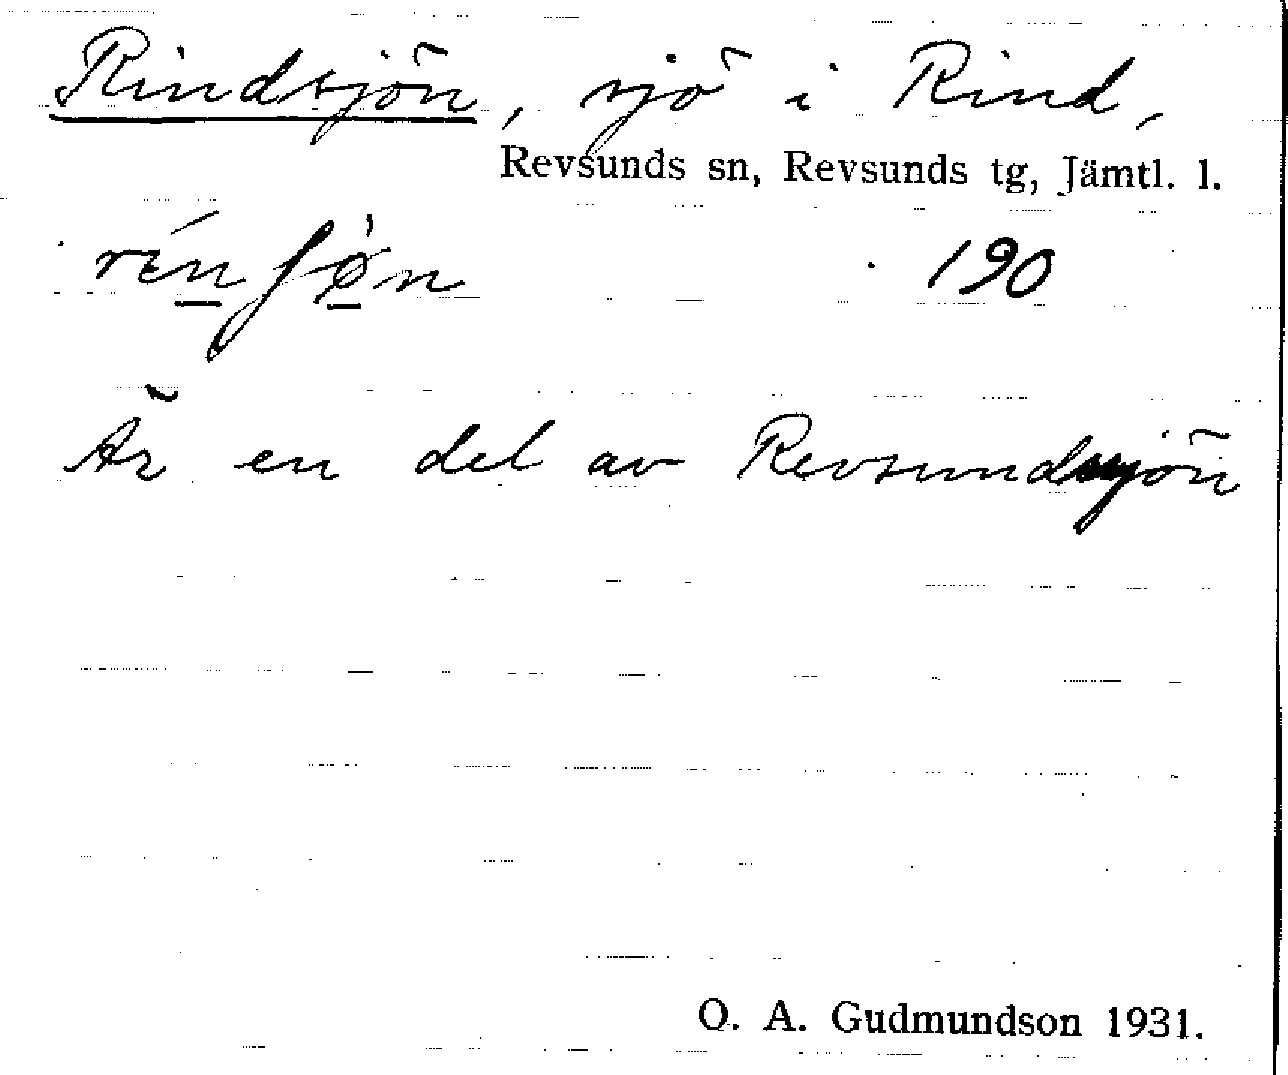 Rindsjön, sjö i Rind,
Revsunds sn, Revsunds tg, Jämtl. l.
190
Är en del av Revsundsjön
O. A. Gudmundson 1931.